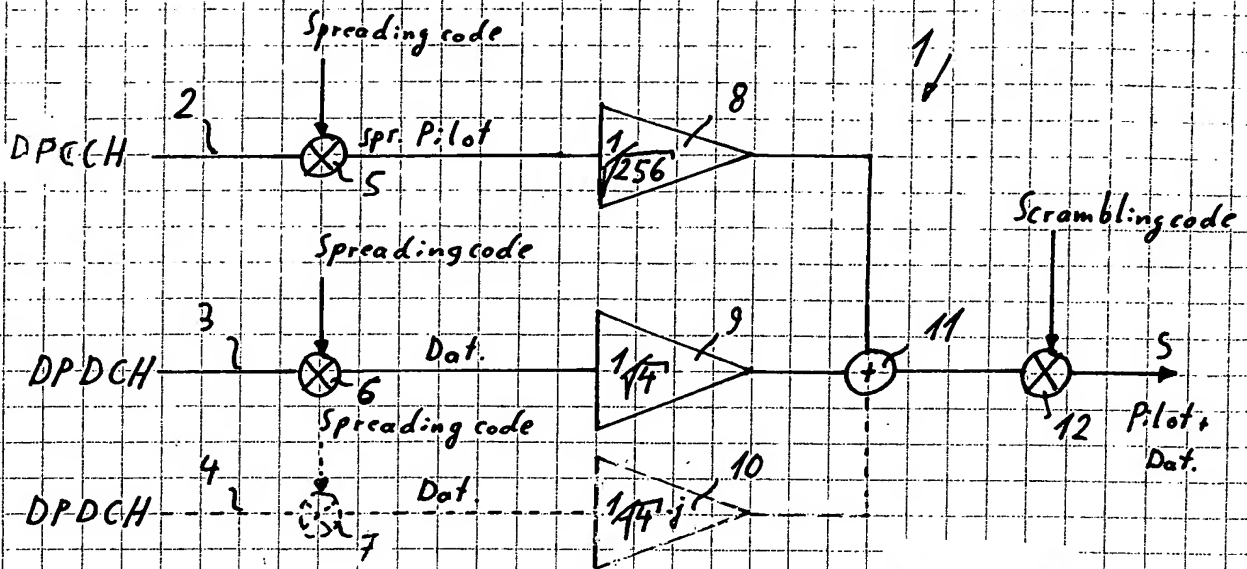 Spreading code
1
2
8
DPCCH
spr. Pilot
1/√256
5
Scrambling code
Spreading code
3
9
11
DPDCH
Dat.
1/√4
+
S
6
12
Pilot +
Dat.
Spreading code
4
10
DPDCH
Dat.
1/√4 j
7